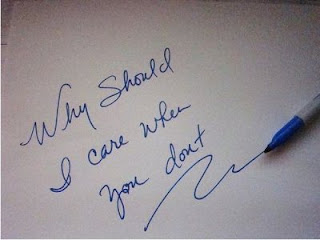 Why Should
I care when
you dont